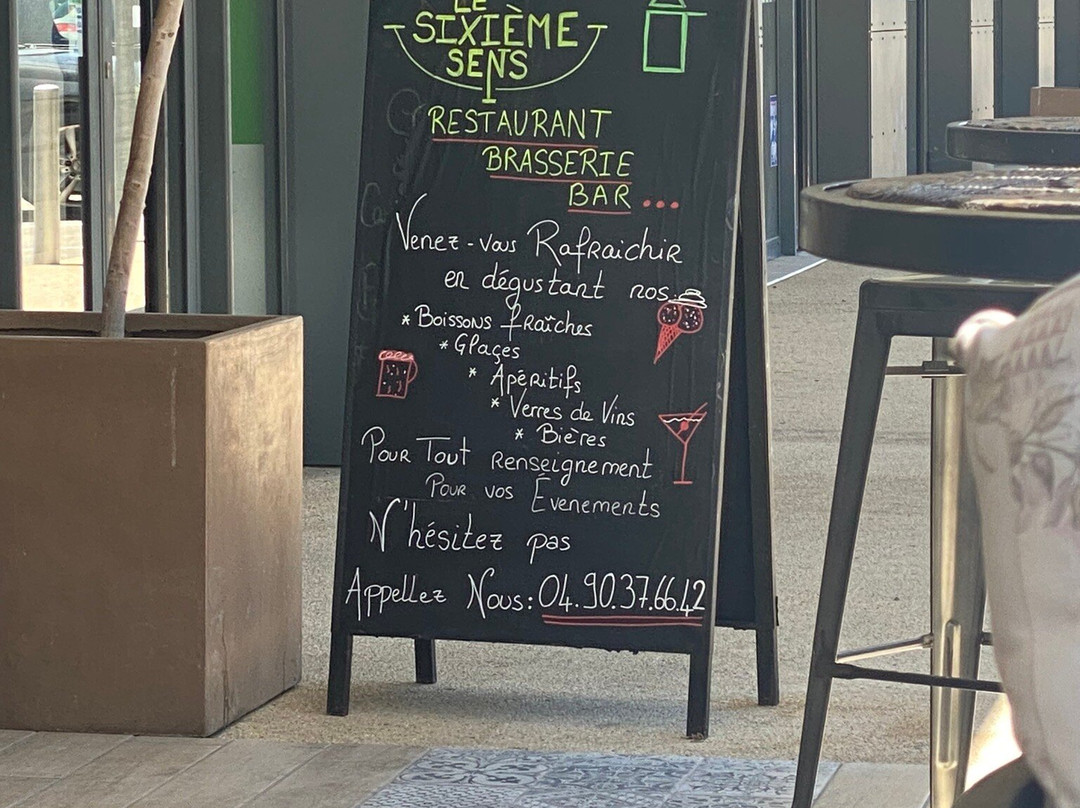 LE
SIXIÈME
SENS
RESTAURANT
BRASSERIE
BAR...
Venez-vous Rafraichir
en dégustant nos:
* Boissons fraîches
* Glaçes
* Apéritifs
* Verres de Vins
* Bières
Pour Tout Renseignement
Pour vos Évenements
N'hésitez pas
Appellez Nous: 04.90.37.66.42